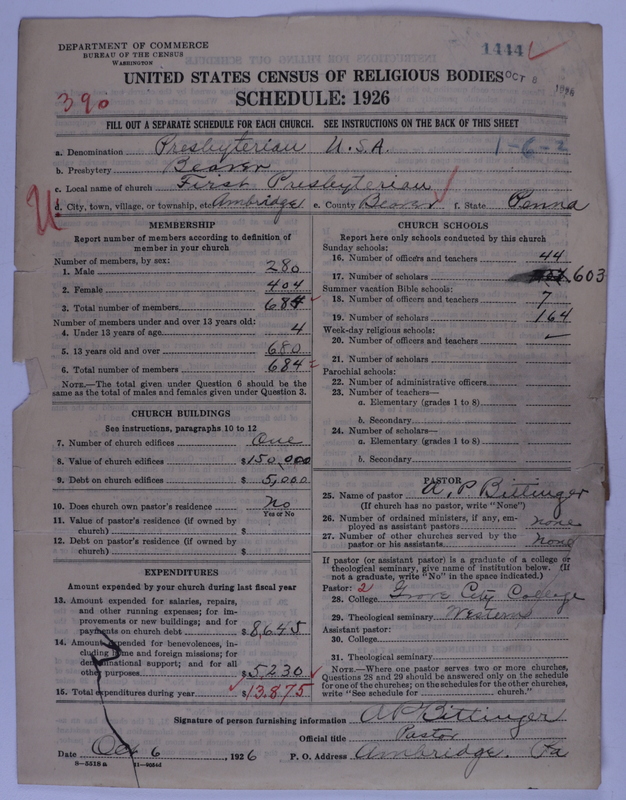 DEPARTMENT OF COMMERCE
BUREAU OF THE CENSUS
WASHINGTON
1444
UNITED STATES CENSUS OF RELIGIOUS BODIES
OCT 8 1926
390
SCHEDULE: 1926
FILL OUT A SEPARATE SCHEDULE FOR EACH CHURCH. SEE INSTRUCTIONS ON THE BACK OF THIS SHEET
a. Denomination Presbyterian U.S.A. 1-6-2
b. Presbytery Beaver
c. Local name of church First Presbyterian
d. City, town, village, or township, etc. Ambridge e. County Beaver f. State Penna
MEMBERSHIP
Report number of members according to definition of
member in your church
Number of members, by sex:
1. Male 280
2. Female 404
3. Total number of members 684
Number of members under and over 13 years old:
4. Under 13 years of age 4
5. 13 years old and over 680
6. Total number of members 684
NOTE.—The total given under Question 6 should be
the same as the total of males and females given under Question 3.
CHURCH BUILDINGS
See instructions, paragraphs 10 to 12
7. Number of church edifices One
8. Value of church edifices $150,000
9. Debt on church edifices $5,000
10. Does church own pastor's residence No
Yes or No
11. Value of pastor's residence (if owned by
church) $
12. Debt on pastor's residence (if owned by
church) $
EXPENDITURES
Amount expended by your church during last fiscal year
13. Amount expended for salaries, repairs,
and other running expenses; for im-
provements or new buildings; and for
payments on church debt $8,645
14. Amount expended for benevolences, in-
cluding home and foreign missions; for
denominational support; and for all
other purposes $5,230
15. Total expenditures during year $13.875
CHURCH SCHOOLS
Report here only schools conducted by this church
Sunday schools:
16. Number of officers and teachers 44
17. Number of scholars 603
Summer vacation Bible schools:
18. Number of officers and teachers 7
19. Number of scholars 164
Week-day religious schools:
20. Number of officers and teachers
21. Number of scholars
Parochial schools:
22. Number of administrative officers
23. Number of teachers—
a. Elementary (grades 1 to 8)
b. Secondary
24. Number of scholars—
a. Elementary (grades 1 to 8)
b. Secondary
PASTOR
25. Name of pastor A. P. Bittinger
(If church has no pastor, write "None")
26. Number of ordained ministers, if any, em-
ployed as assistant pastors none
27. Number of other churches served by the
pastor or his assistants none
If pastor (or assistant pastor) is a graduate of a college or
theological seminary, give name of institution below. (If
not a graduate, write "No" in the space indicated.)
Pastor: 2
28. College Grove City College
29. Theological seminary Western
Assistant pastor:
30. College
31. Theological seminary
NOTE.—Where one pastor serves two or more churches,
Questions 28 and 29 should be answered only on the schedule
for one of the churches; on the schedules for the other churches,
write "See schedule for church."
Signature of person furnishing information A P Bittinger
Official title Pastor
Date Oct 6, 1926 P. O. Address Ambridge. Pa
8—5518 a